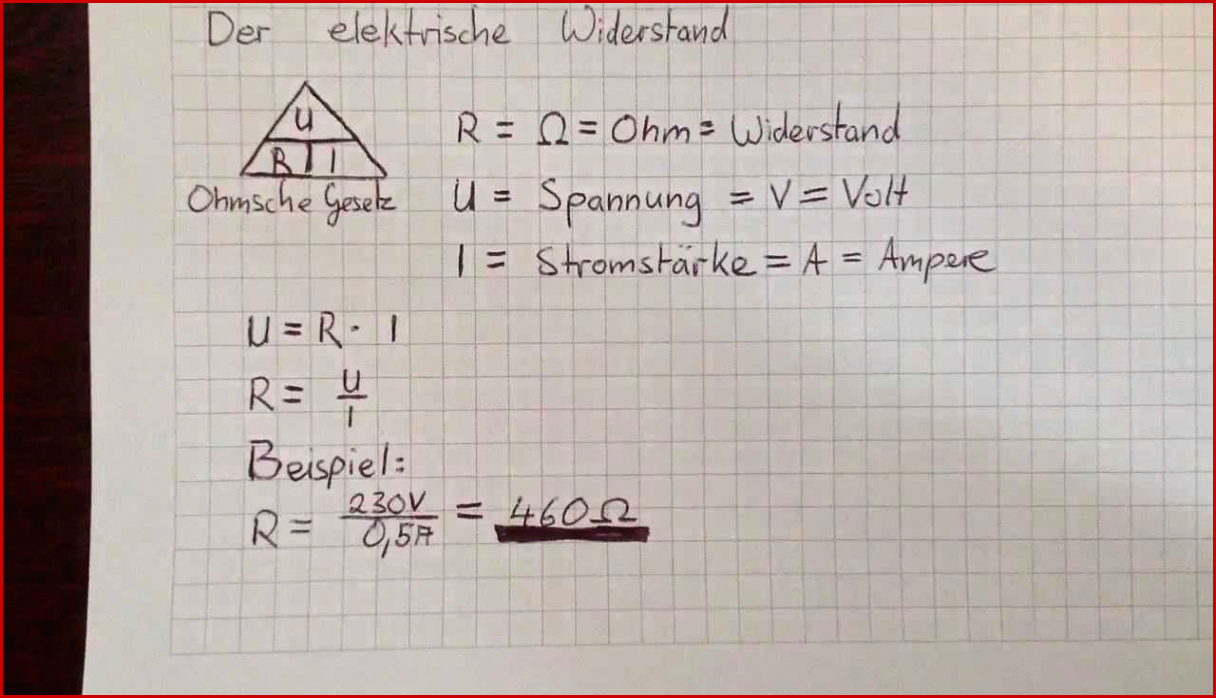 Der elektrische Widerstand
U
R I
Ohmsche Gesetz
R = Ω = Ohm = Widerstand
U = Spannung = V = Volt
I = Stromstärke = A = Ampere
U = R · I
R = U/I
Beispiel:
R = 230V/0,5A = 460Ω